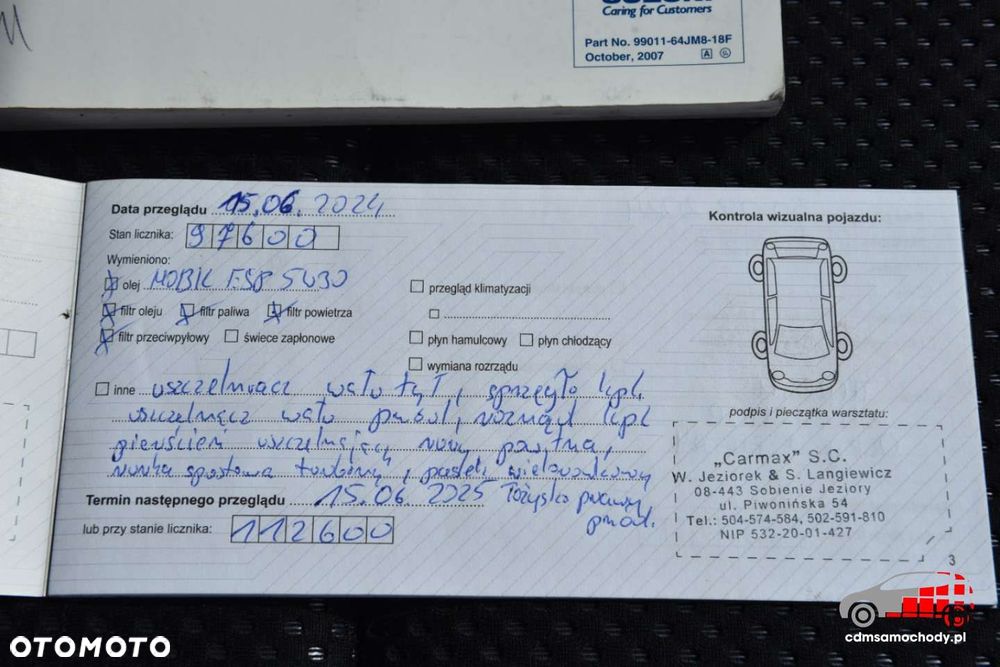 Caring for Customers
Part No. 99011-64JM8-18F
October, 2007
Data przeglądu 15.06.2024
Stan licznika: 97600
Wymieniono:
olej MOBIL ESP 5W30
filtr oleju filtr paliwa filtr powietrza
filtr przeciwpyłowy świece zapłonowe
przegląd klimatyzacji
płyn hamulcowy płyn chłodzący
wymiana rozrządu
inne uszczelniacz wału tył, sprzęgło kpl.
uszczelniacz wału przód, rozrząd kpl
pierścień uszczelniający rury
rurka spustowa turbiny, pasek wielorowkowy
Termin następnego przeglądu 15.06.2025 Łożysko
lub przy stanie licznika: 112600
Kontrola wizualna pojazdu:
podpis i pieczątka warsztatu:
„Carmax" S.C.
W. Jeziorek & S. Langiewicz
08-443 Sobienie Jeziory
ul. Piwonińska 54
Tel.: 504-574-584, 502-591-810
NIP 532-20-01-427
3
OTOMOTO
cdmsamochody.pl